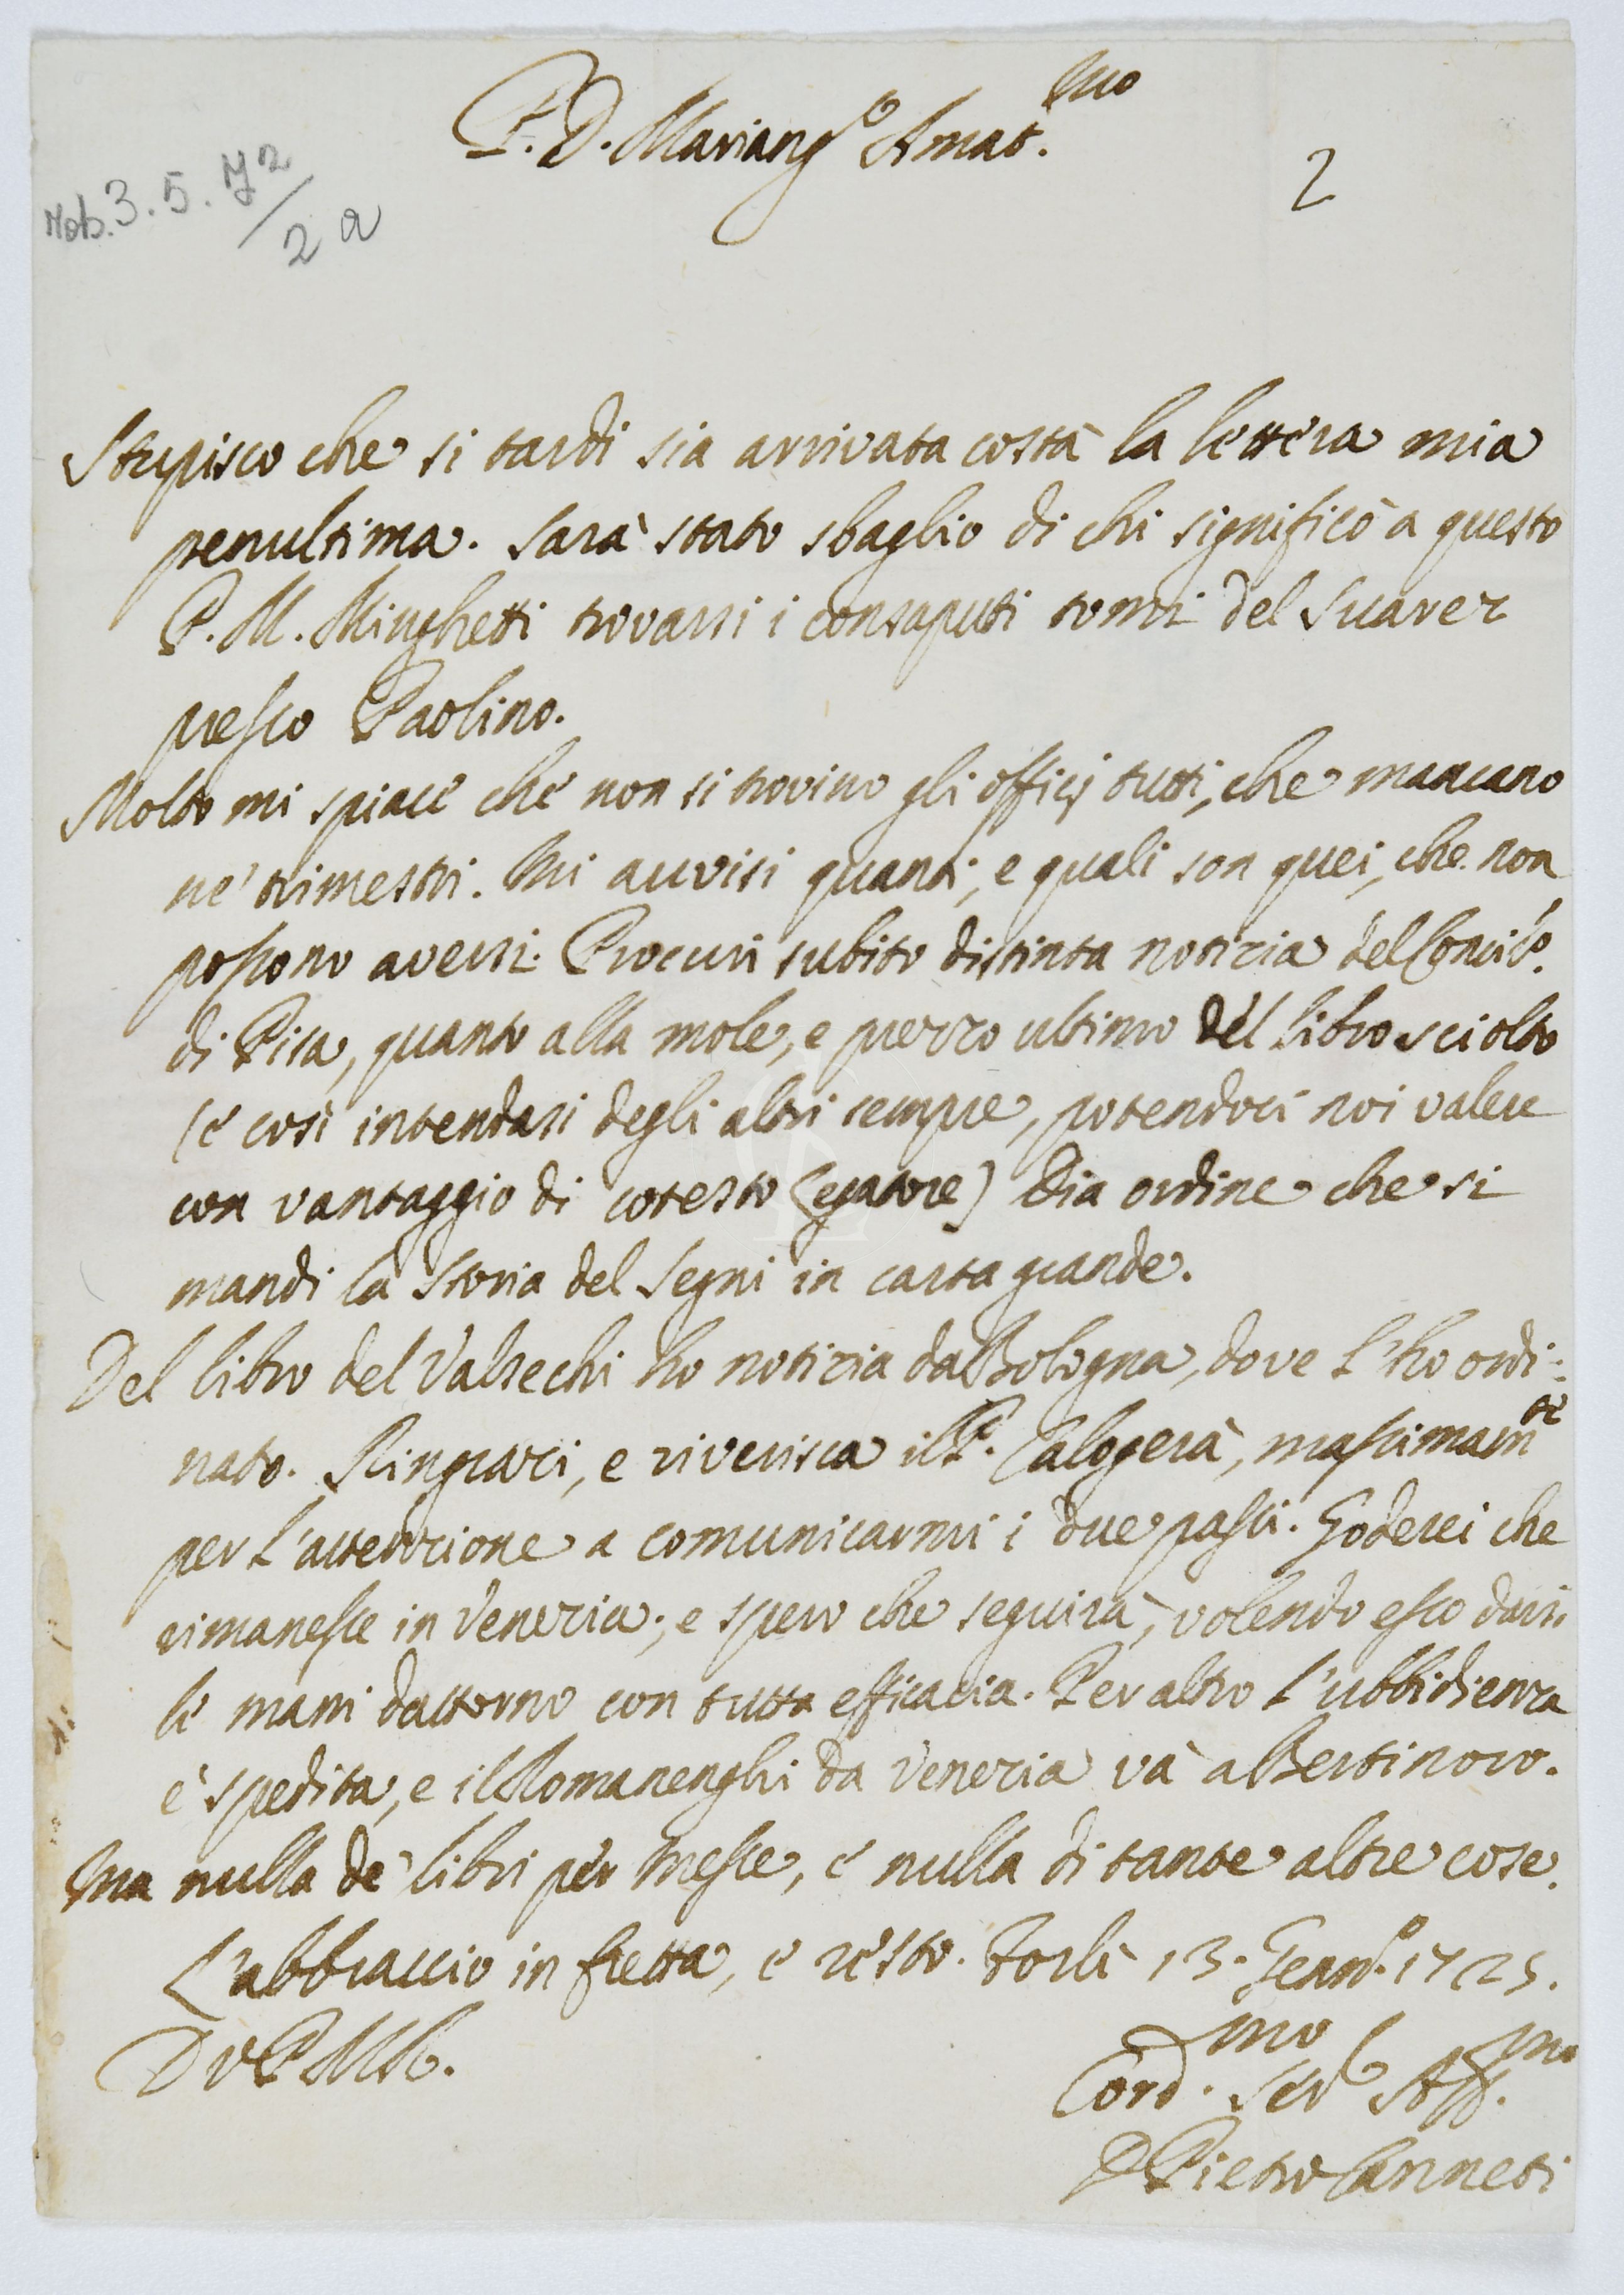 P. D. Mariang.o Amat.mo
2
Mob. 3. 5. Y2/2 a
Stupisco che sì tardi sia arrivata costà la lettera mia
penultima. Sarà stato sbaglio di chi significò a questo
P. M. Minghetti trovarsi i consaputi tomi del Suarez
presso Paolino.
Molto mi spiace che non si trovino gli officj tutti, che mancano
ne' trimestri. Mi avvisi quanti, e quali son quei, che non
possono aversi. Procuri subito distinta notizia del Concil.o
di Pisa, quanto alla mole, e prezzo ultimo del libro sciolto
(e così intendasi degli altri sempre, potendoci noi valere
con vantaggio di cotesto Legatore) Dia ordine che si
mandi la Storia del Segni in carta grande.
Del libro del Valsechi ho notizia da Bologna, dove l'ho ordi=
nato. Ringrazi, e riverisca il P. Calogerà, massimam.te
per l'attenzione a comunicarmi i due passi. Goderei che
rimanesse in Venezia; e spero che seguirà, volendo esso darsi
le mani dattorno con tutta efficacia. Per altro l'ubbidienza
è spedita, e il Romanenghi da Venezia và a Bertinoro.
Ma nulla de' libri per Messe, e nulla di tante altre cose.
L'abbraccio in fretta, e resto. Forlì 13. Genn.o 1725.
D V P M R.
Cord.mo Ser.e Aff.mo
D Pietro Canneti